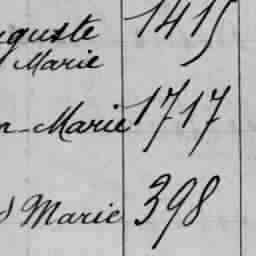 guste 1415
Marie
n-Marie 1717
d Marie 398